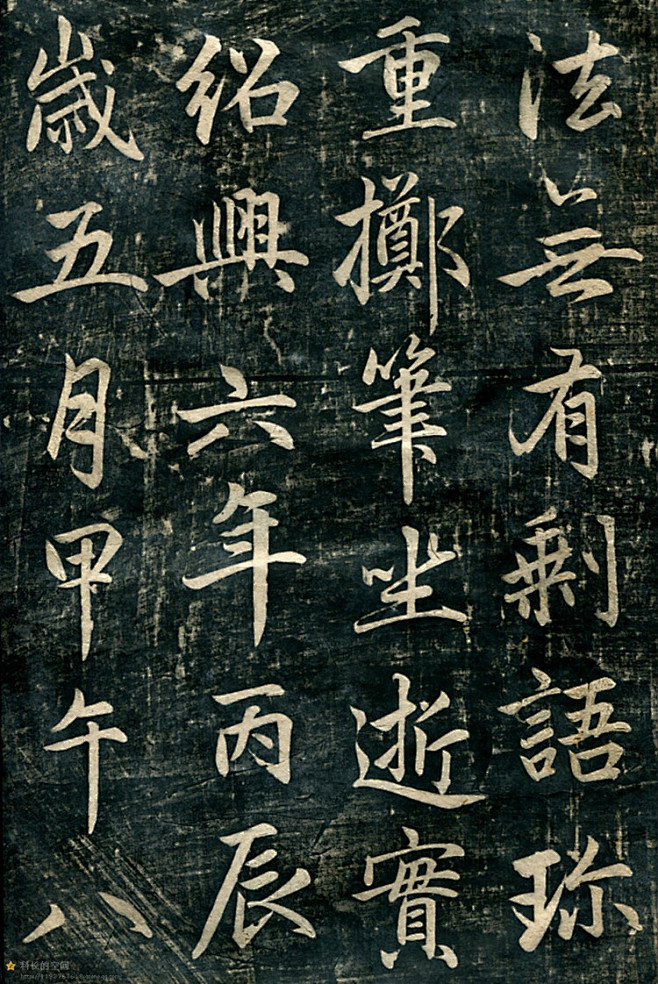 法無有剩語珎
重擲筆坐逝實
紹興六年丙辰
歲五月甲午八
科长的空间